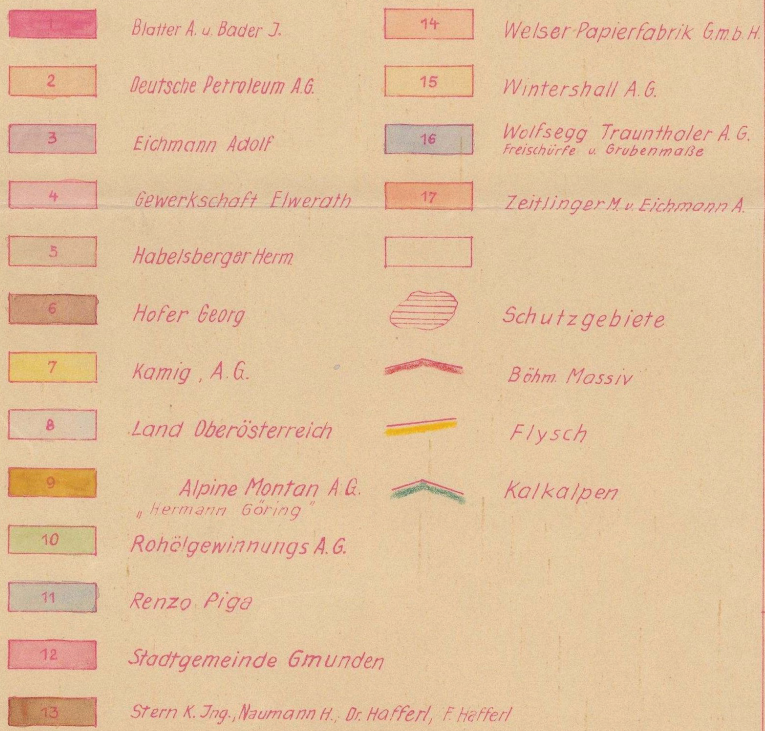 1 Blatter A. u. Bader J.
2 Deutsche Petroleum A.G.
3 Eichmann Adolf
4 Gewerkschaft Elwerath
5 Habelsberger Herm.
6 Hofer Georg
7 Kamig, A.G.
8 Land Oberösterreich
9 Alpine Montan A.G.
„Hermann Göring"
10 Rohölgewinnungs A.G.
11 Renzo Piga
12 Stadtgemeinde Gmunden
13 Stern K. Jng., Naumann H., Dr. Hafferl, F. Hafferl
14 Welser Papierfabrik G.m.b.H.
15 Wintershall A.G.
16 Wolfsegg Traunthaler A.G.
Freischürfe u. Grubenmaße
17 Zeitlinger M. u. Eichmann A.
Schutzgebiete
Böhm. Massiv
Flysch
Kalkalpen